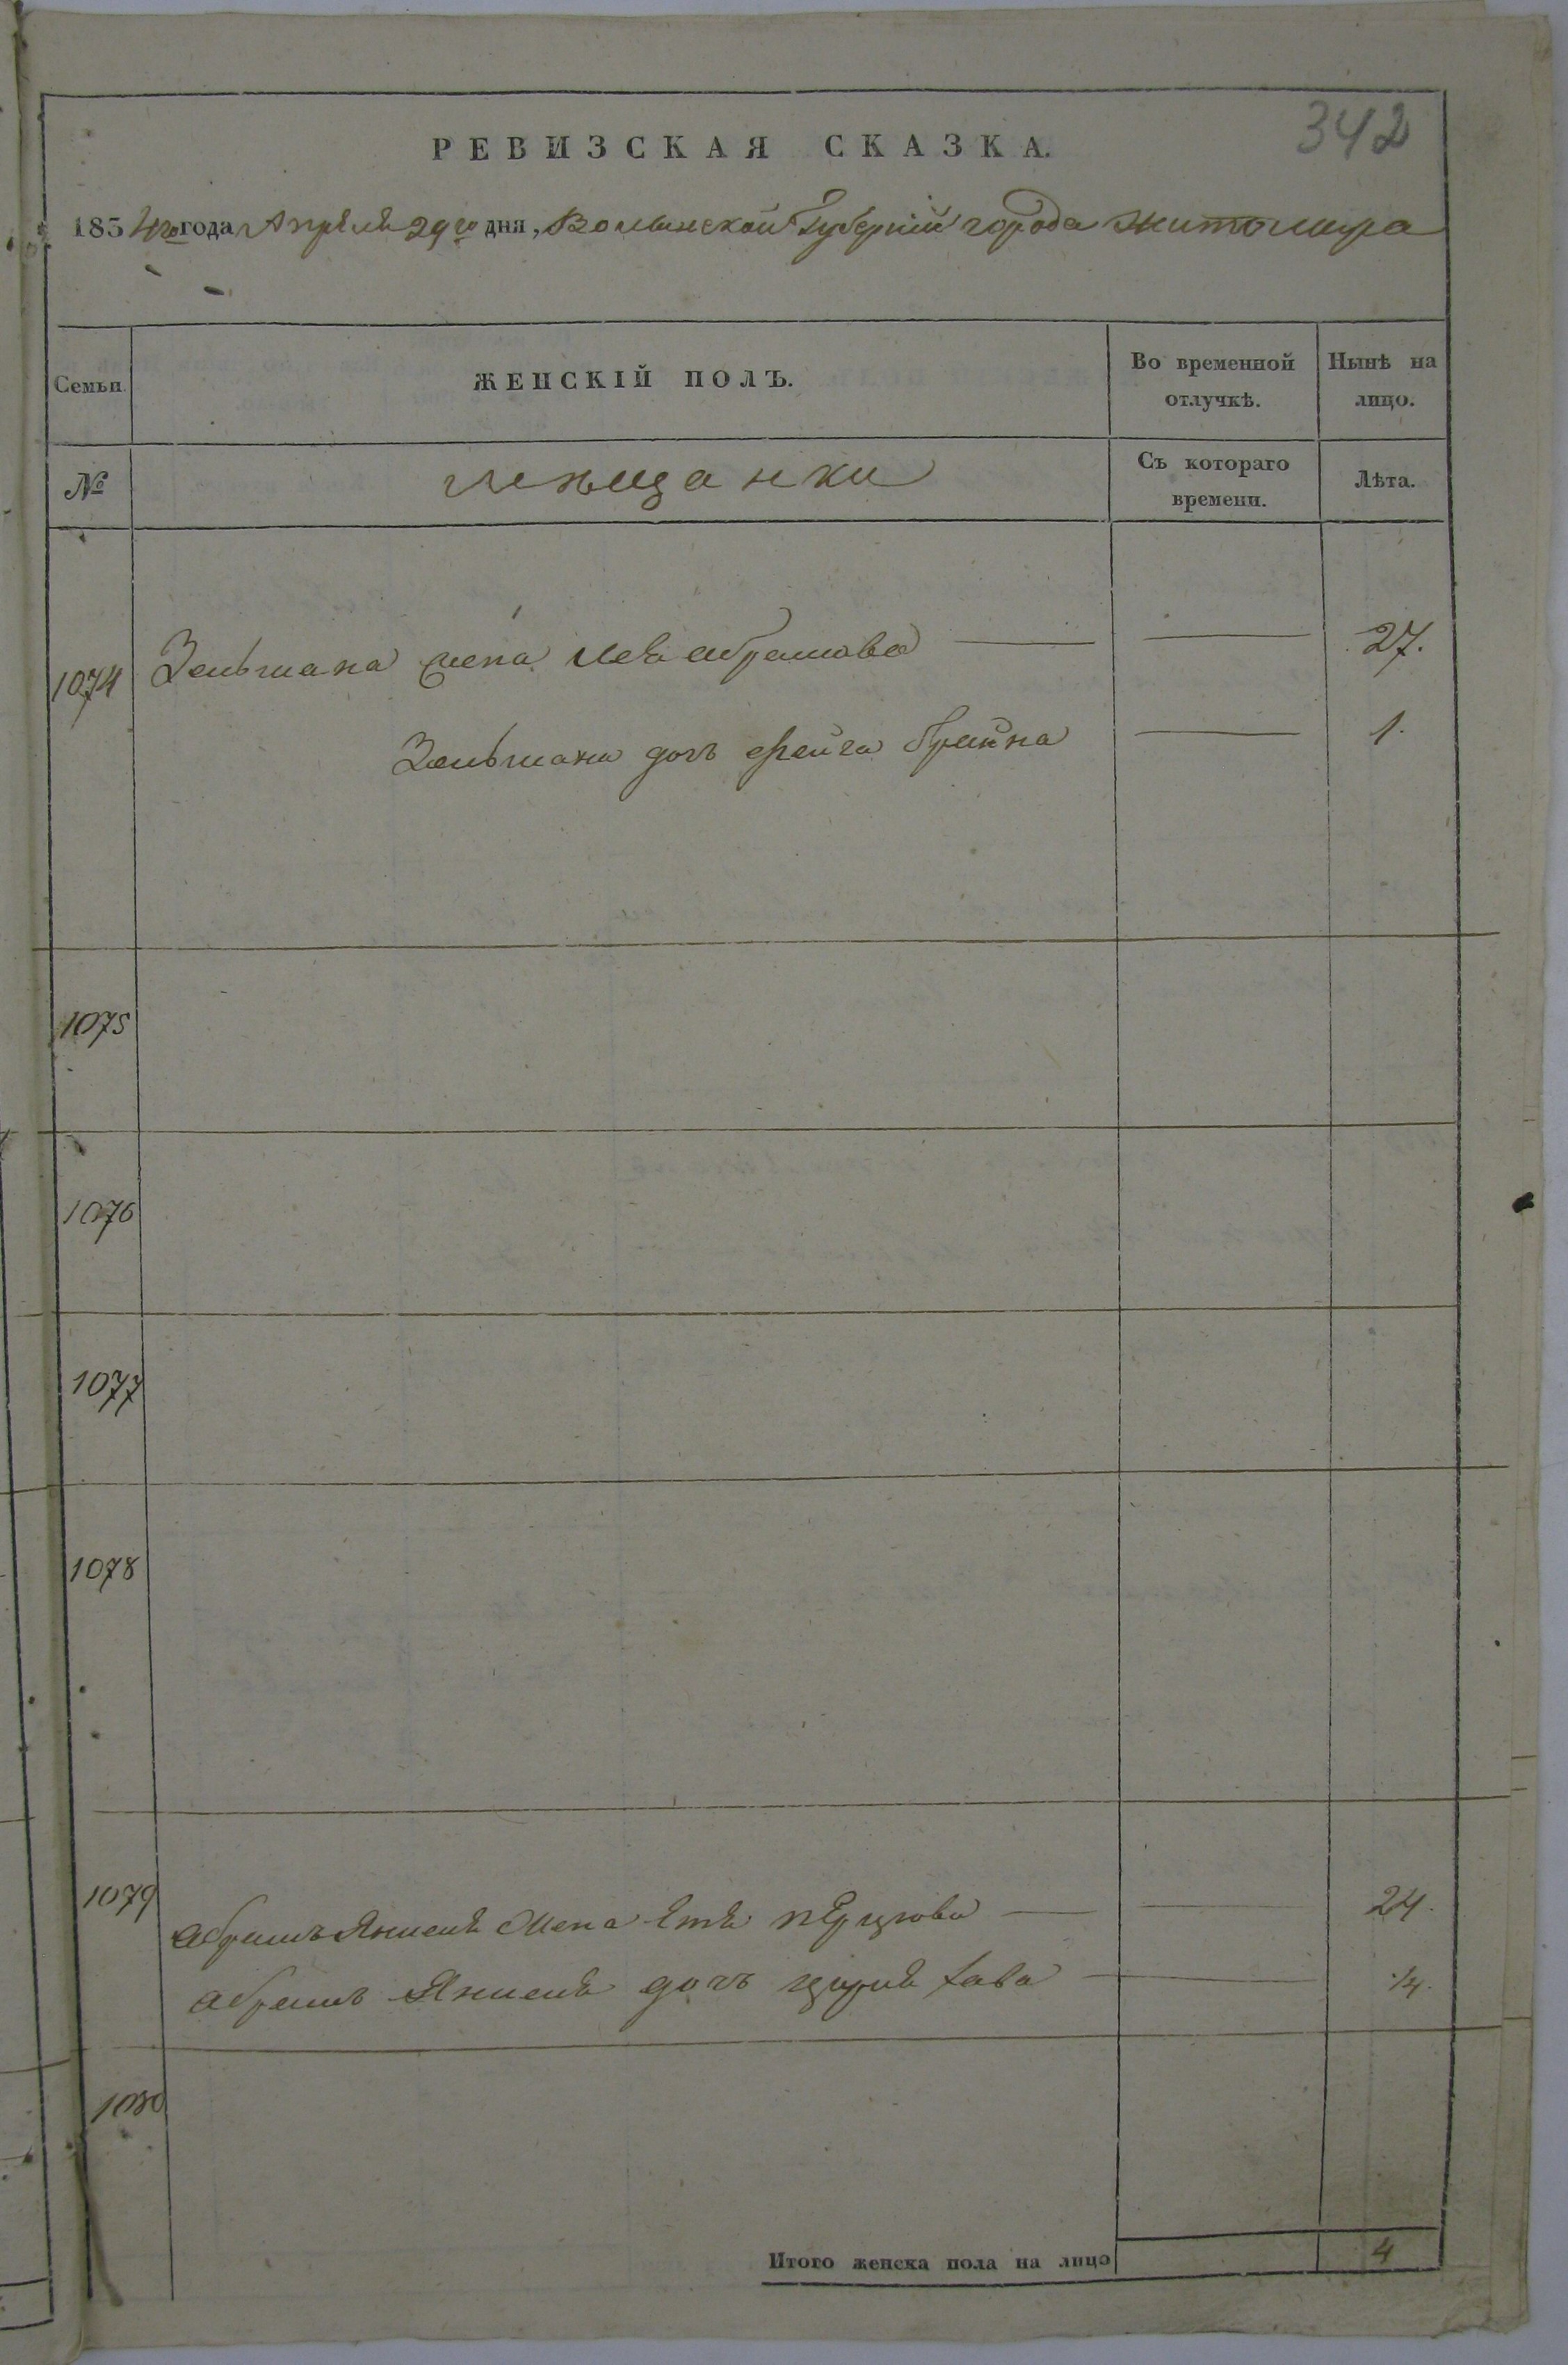 342
РЕВИЗСКАЯ СКАЗКА.
1854го года Апреля 29го дня, Волынской Губернии города Житомира
Семьи.
ЖЕНСКІЙ ПОЛЪ.
Во временной отлучкѣ.
Нынѣ на лицо.
№
мещанки
Съ котораго времени.
Лѣта.
1074 Зельмана жена Лея Абрамова — — 27.
Зельмана дочь Фейга Брайна — 1.
1075
1076
1077
1078
1079 Абрамъ Янкеля жена Етя — — 24.
Абрамъ Янкеля дочь Хава — — 1/4.
1080
Итого женска пола на лицо 4